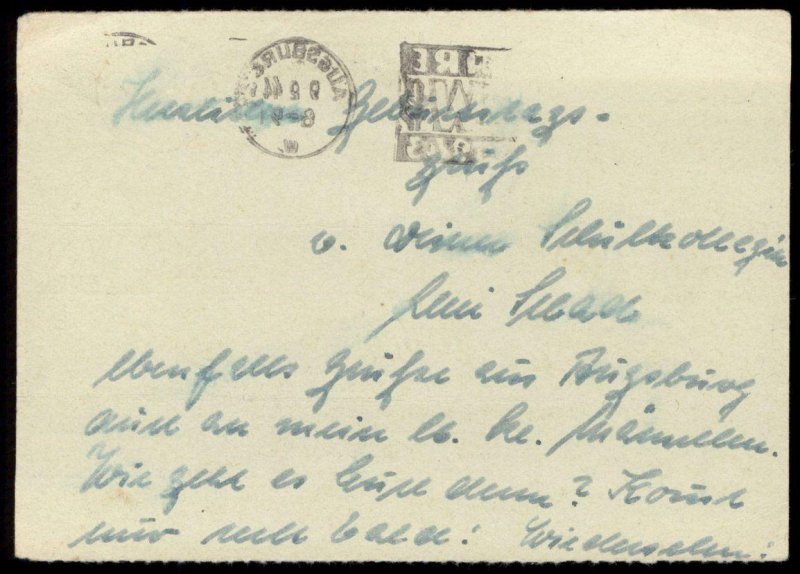 Herzlichen Geburtstags-
grüße
v. Deiner Schulkollegin
ebenfalls Grüße aus Augsburg
auch an mein lb. kl. Männchen.
Wie geht es Euch denn? Kommt
nur recht bald! Wiedersehen!
AUGSBURG